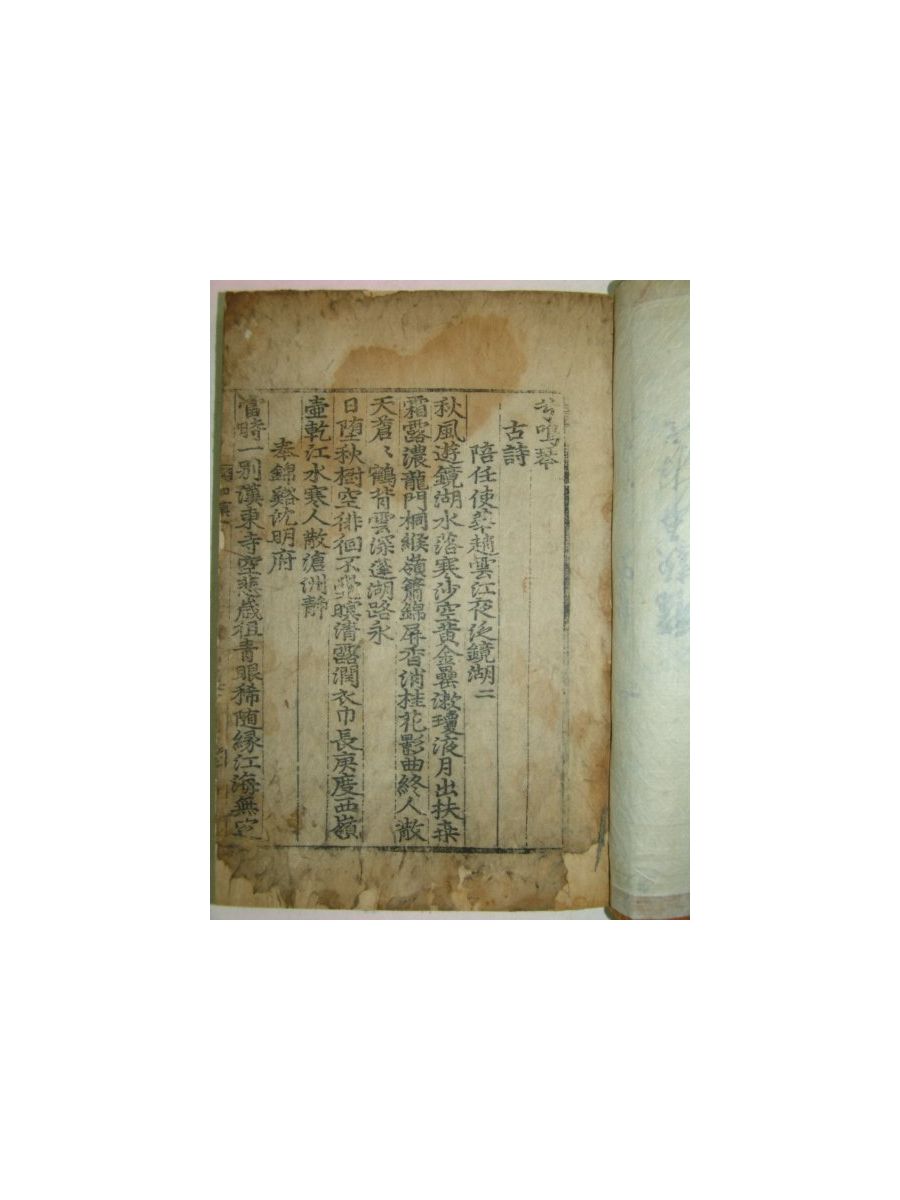 鳴琴
古詩
陪任使 趙雲江夜泛鏡湖二
秋風遊鏡湖水落寒沙空黃金罍漱瓊液月出扶桒
霜露濃龍門桐緱嶺簫錦屏香消桂花影曲終人散
天蒼〻鶴背雲深蓬湖路永
日墮秋樹空徘徊不 暝淸露潤衣巾長庚度西嶺
壺乾江水寒人散滄洲靜
奉錦谿沈明府
當時一別漢東寺空悲歲徂靑眼稀隨緣江海無定